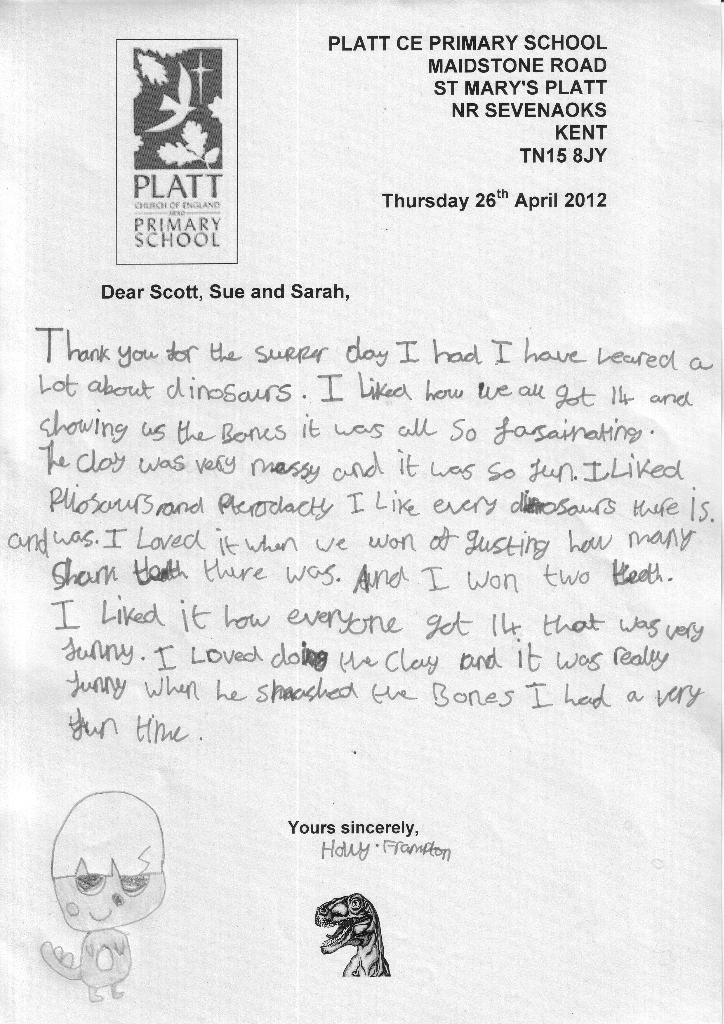 PLATT CE PRIMARY SCHOOL
MAIDSTONE ROAD
ST MARY'S PLATT
NR SEVENAOKS
KENT
TN15 8JY
Thursday 26th April 2012
PLATT
CHURCH OF ENGLAND
PRIMARY
SCHOOL
Dear Scott, Sue and Sarah,
Thank you for the supper day I had I have leared a
Lot about dinosaurs. I liked how we all got 14 and
showing us the Bones it was all so fasainating.
The clay was very messy and it was so fun. I Liked
Pliosaurs and Pterodactly I Like every dinosaurs there is.
and was. I Loved it when we won at gusting how many
Shark teeth there was. And I won two teeth.
I Liked it how everyone got 14 that was very
funny. I Loved doing the Clay and it was really
funny when he smashed the Bones I had a very
fun time.
Yours sincerely,
Holly Frampton